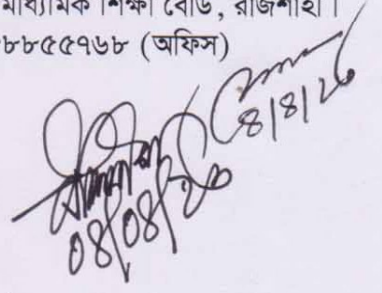 মাধ্যমিক শিক্ষা বোর্ড, রাজশাহী।
৮৮৫৫৭৬৮ (অফিস)
8/8/26
০৪/০৪/২৬